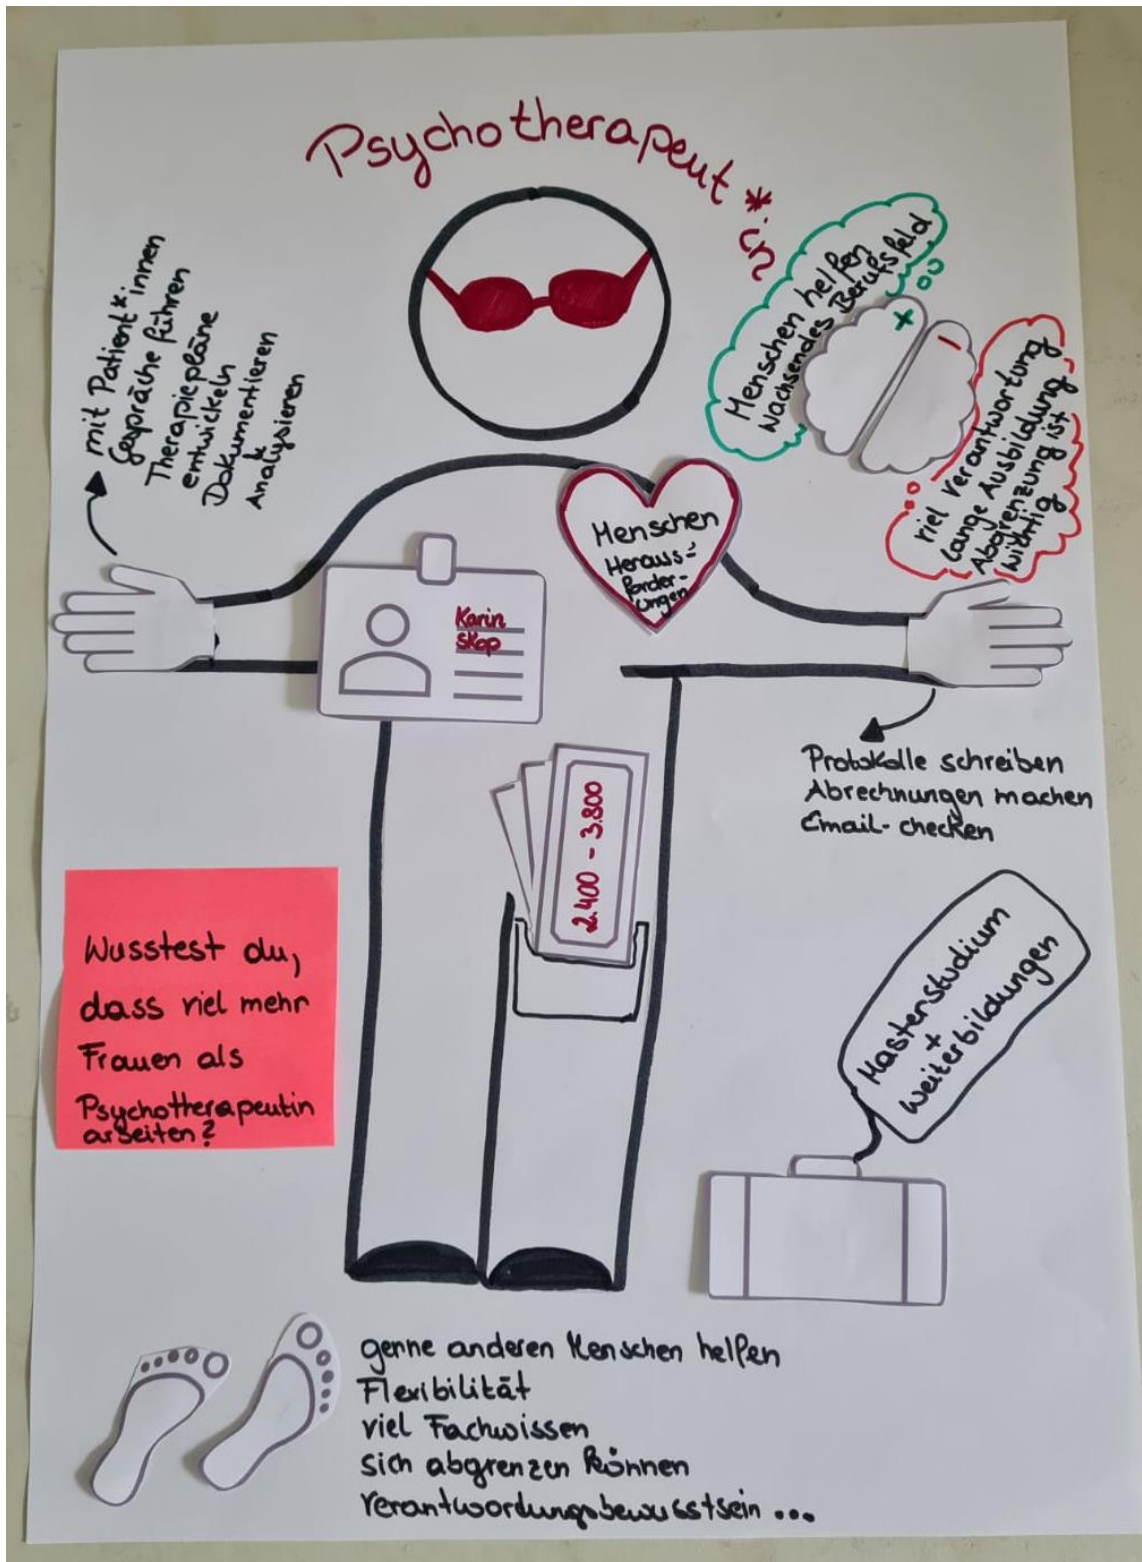 Psychotherapeut*in
mit Patient*innen
Gespräche führen
Therapiepläne
entwickeln
Dokumentieren
&
Analysieren
Menschen helfen
Wachsendes Berufsfeld
+
-
viel Verantwortung
lange Ausbildung
Abgrenzung ist
wichtig
Menschen
Heraus=
forder-
ungen
Karin
Skop
Protokolle schreiben
Abrechnungen machen
Email-checken
2.400 - 3.800
Wusstest du,
dass viel mehr
Frauen als
Psychotherapeutin
arbeiten?
Masterstudium
+
Weiterbildungen
gerne anderen Menschen helfen
Flexibilität
viel Fachwissen
sich abgrenzen können
Verantwordungsbewusstsein ...